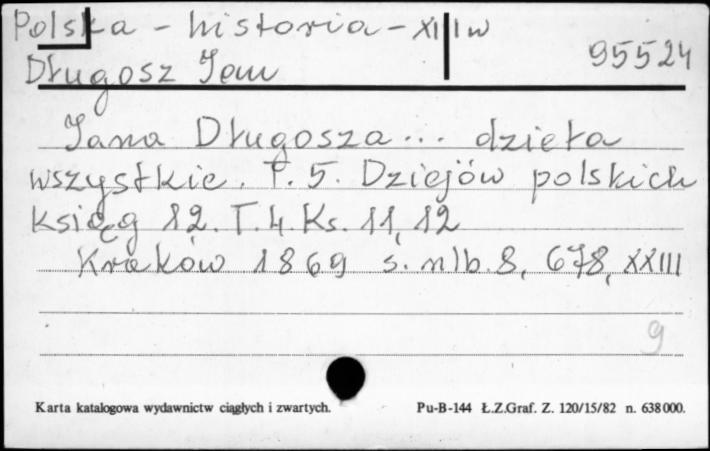 Polska - historia - XIII w
95524
Długosz Jan
Jana Długosza... dzieła
wszystkie. T. 5. Dziejów polskich
ksiąg 12. T. 4. Ks. 11, 12
Kraków 1869 s. nlb. 8, 678, XXIII
9
Karta katalogowa wydawnictw ciągłych i zwartych.
Pu-B-144 Ł.Z.Graf. Z. 120/15/82 n. 638000.